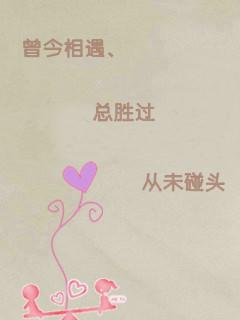 曾今相遇、
总胜过
从未碰头